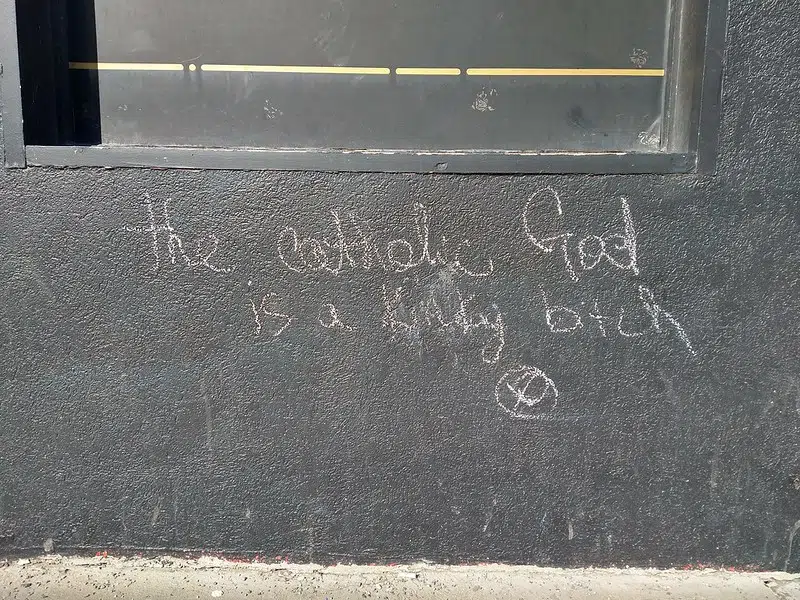 the catholic God
is a kinky bitch